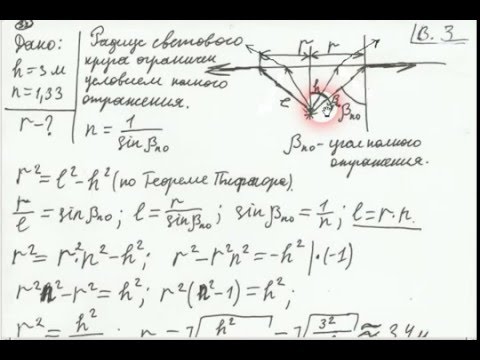 Дано:
h = 3 м
n = 1,33
r - ?
Радиус светового
круга ограничен
условием полного
отражения.
n = 1/sin βпо
В. 3
r r
l h β βпо
βпо - угол полного
отражения.
r² = l² - h² (по Теореме Пифагора).
r/l = sin βпо; l = r/sin βпо; sin βпо = 1/n; l = r·n.
r² = r²·n² - h²; r² - r²n² = -h² |·(-1)
r²n² - r² = h²; r²(n² - 1) = h²;
r² = h²